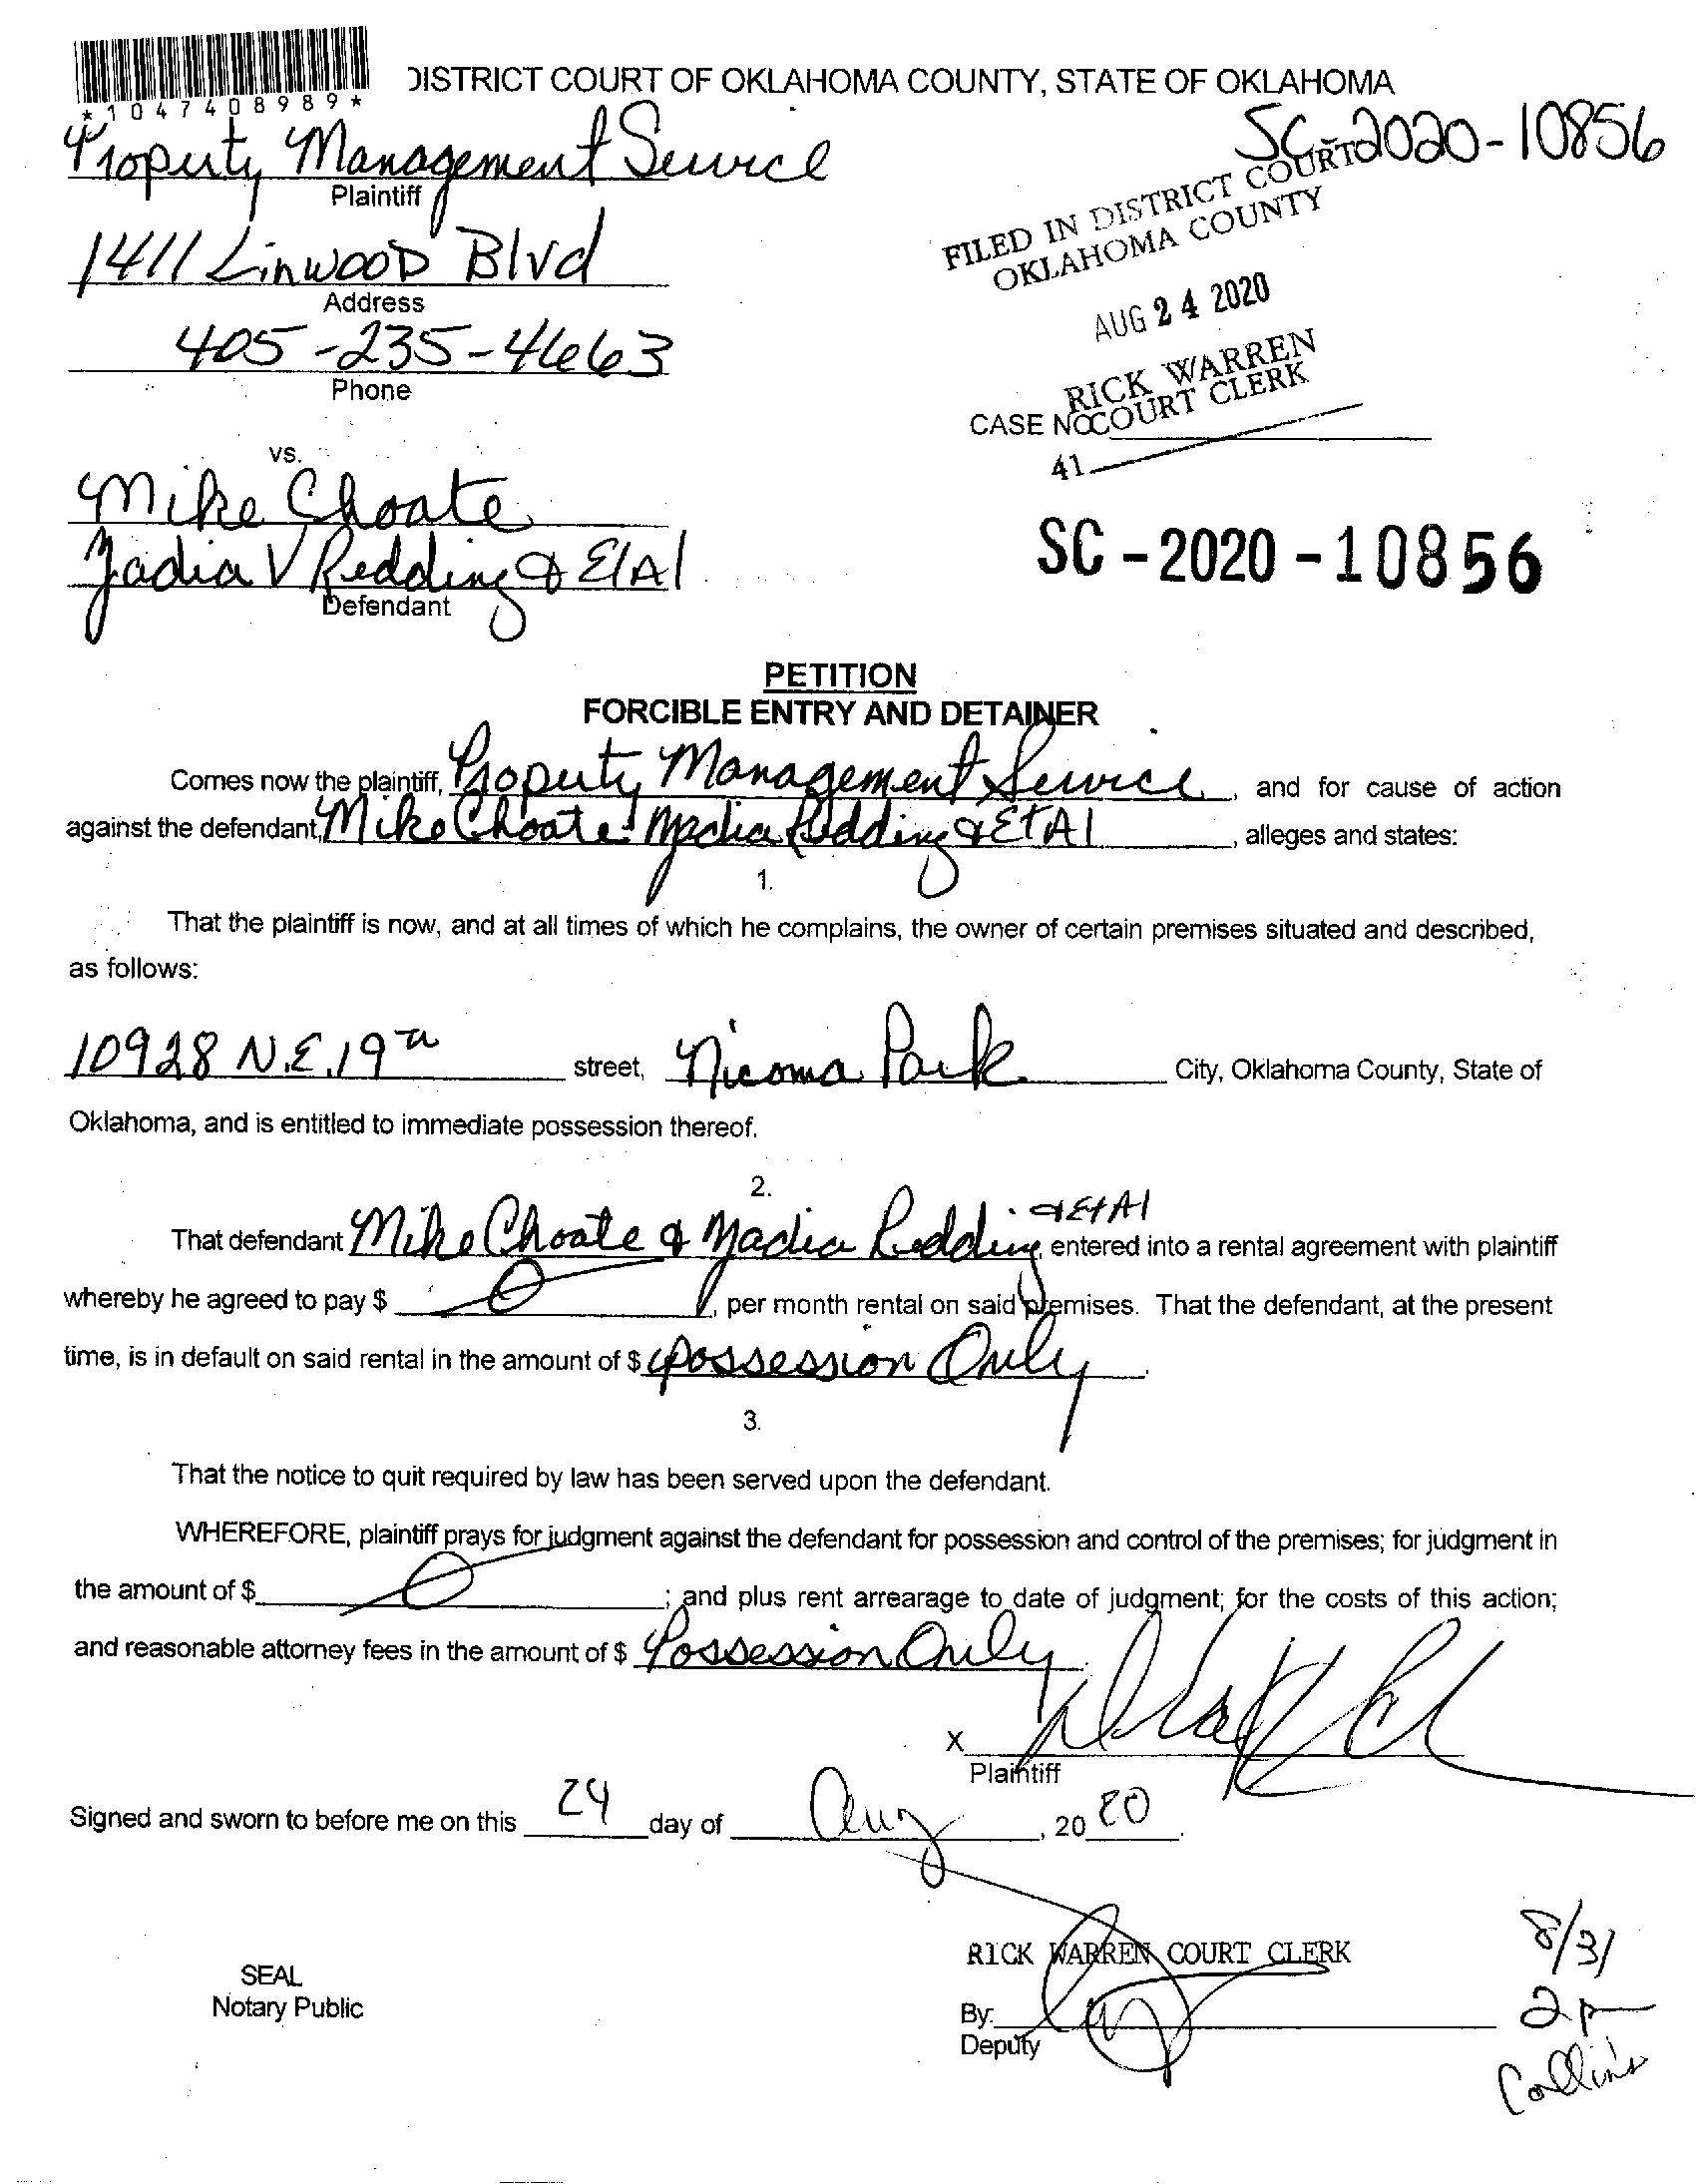 *1047408989*
DISTRICT COURT OF OKLAHOMA COUNTY, STATE OF OKLAHOMA
SC-2020-10856
Property Management Service
Plaintiff
FILED IN DISTRICT COURT
OKLAHOMA COUNTY
1411 LinwooD Blvd
Address
AUG 24 2020
405-235-4663
Phone
RICK WARREN
COURT CLERK
CASE NO
41
vs.
Mike Choate
V Redding & EtAl
Defendant
SC-2020-10856
PETITION
FORCIBLE ENTRY AND DETAINER
Comes now the plaintiff, Property Management Service, and for cause of action
against the defendant, Mike Choate Redding & EtAl, alleges and states:
1.
That the plaintiff is now, and at all times of which he complains, the owner of certain premises situated and described,
as follows:
10928 N.E. 19th street, Nicoma Park City, Oklahoma County, State of
Oklahoma, and is entitled to immediate possession thereof.
2.
That defendant Mike Choate & Redding & EtAl, entered into a rental agreement with plaintiff
whereby he agreed to pay $ 0, per month rental on said premises. That the defendant, at the present
time, is in default on said rental in the amount of $ possession Only.
3.
That the notice to quit required by law has been served upon the defendant.
WHEREFORE, plaintiff prays for judgment against the defendant for possession and control of the premises; for judgment in
the amount of $ 0; and plus rent arrearage to date of judgment; for the costs of this action;
and reasonable attorney fees in the amount of $ Possession Only.
X
Plaintiff
Signed and sworn to before me on this 24 day of Aug, 2020.
RICK WARREN COURT CLERK
8/31
SEAL
Notary Public
By:
2p
Deputy
Collins